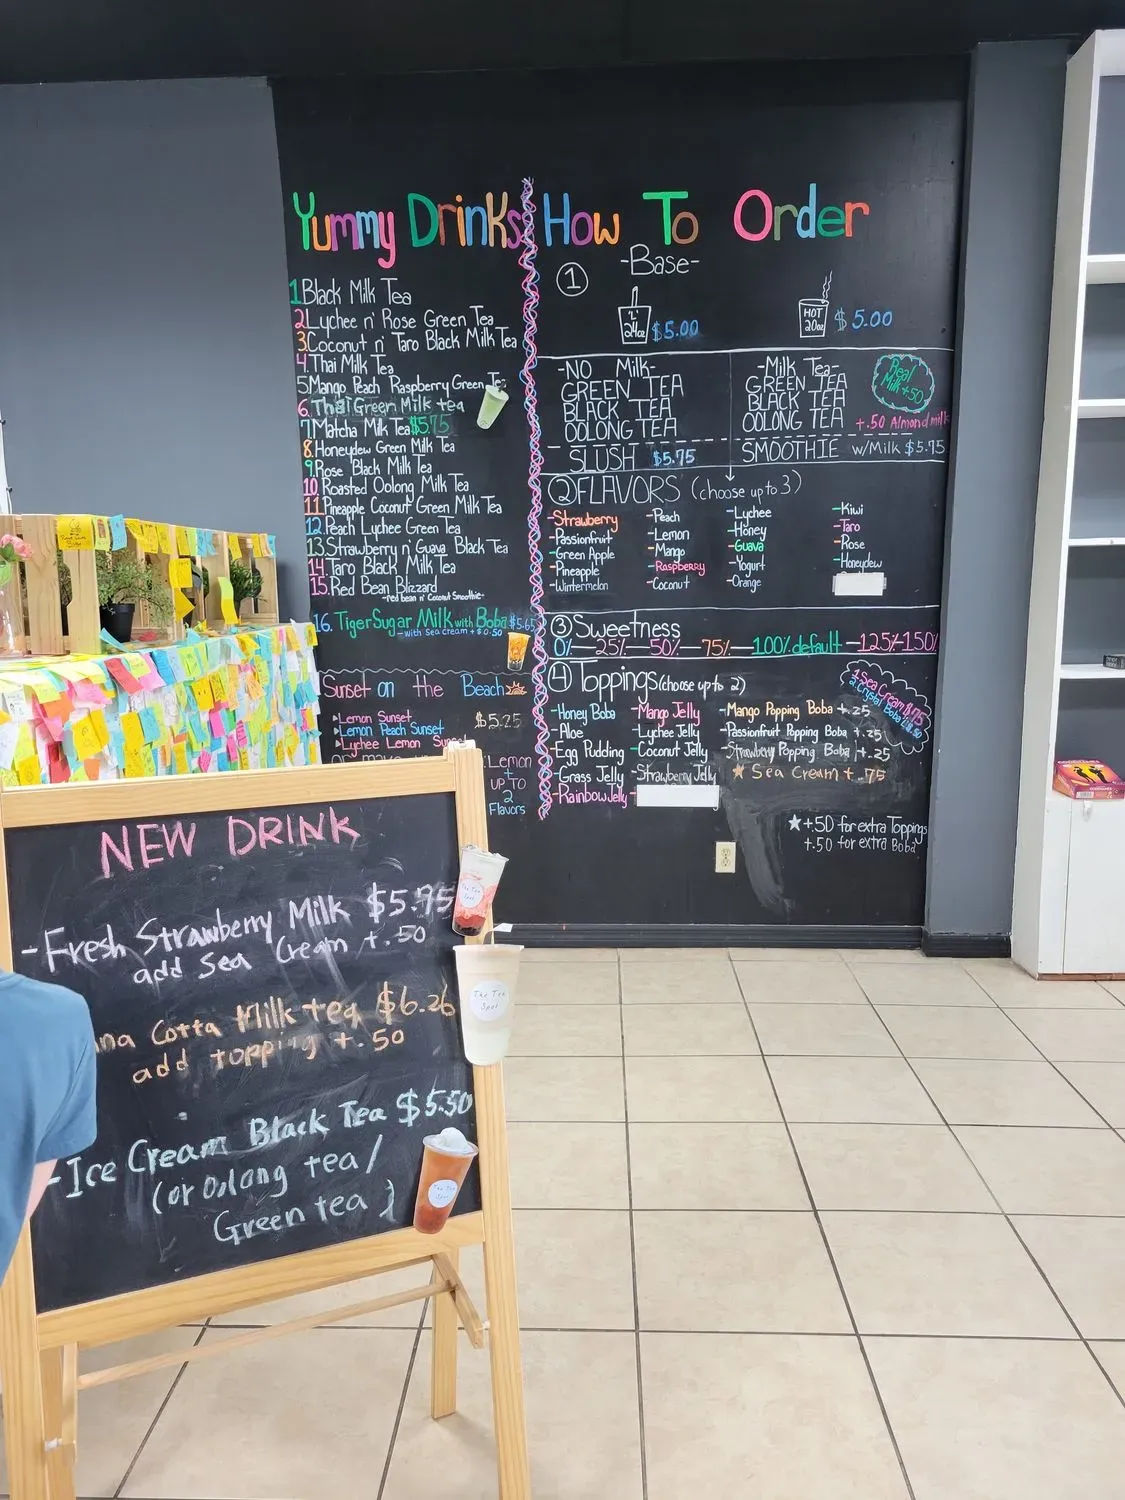 Yummy Drinks
1 Black Milk Tea
2 Lychee n' Rose Green Tea
3 Coconut n' Taro Black Milk Tea
4. Thai Milk Tea
5 Mango Peach Raspberry Green Tea
6. Thai Green Milk tea
7. Matcha Milk Tea $5.75
8. Honeydew Green Milk Tea
9. Rose Black Milk Tea
10. Roasted Oolong Milk Tea
11. Pineapple Coconut Green Milk Tea
12. Peach Lychee Green Tea
13. Strawberry n' Guava Black Tea
14. Taro Black Milk Tea
15. Red Bean Blizzard
-red bean n' Coconut Smoothie-
16. Tiger Sugar Milk with Boba $5.65
-with Sea cream + $0.50
Sunset on the Beach
Lemon Sunset $5.25
Lemon Peach Sunset
Lychee Lemon Sunset
Lemon
+
UP TO
2
Flavors
How To Order
1 -Base-
"L"
24oz $5.00
HOT
20oz $5.00
-NO Milk-
GREEN TEA
BLACK TEA
OOLONG TEA
SLUSH $5.75
-Milk Tea-
GREEN TEA
BLACK TEA
OOLONG TEA
Real
Milk +.50
+.50 Almond milk
SMOOTHIE w/Milk $5.75
2 FLAVORS (choose up to 3)
-Strawberry
-Passionfruit
-Green Apple
-Pineapple
-Wintermelon
-Peach
-Lemon
-Mango
-Raspberry
-Coconut
-Lychee
-Honey
-Guava
-Yogurt
-Orange
-Kiwi
-Taro
-Rose
-Honeydew
3 Sweetness
0%—25%—50%—75%—100% default—125%-150%
4 Toppings (choose up to 2)
-Honey Boba
-Aloe
-Egg Pudding
-Grass Jelly
-Rainbow Jelly
-Mango Jelly
-Lychee Jelly
-Coconut Jelly
-Strawberry Jelly
-Mango Popping Boba +.25
-Passionfruit Popping Boba +.25
-Strawberry Popping Boba +.25
★ Sea Cream +.75
Sea Cream $.75
Crystal Boba
★+.50 for extra Toppings
+.50 for extra Boba
NEW DRINK
-Fresh Strawberry Milk $5.95
add Sea Cream +.50
na Cotta Milk tea $6.26
add topping +.50
-Ice Cream Black Tea $5.50
(or Oolong tea/
Green tea }
The Tea
Spot
The Tea
Spot
The Tea
Spot